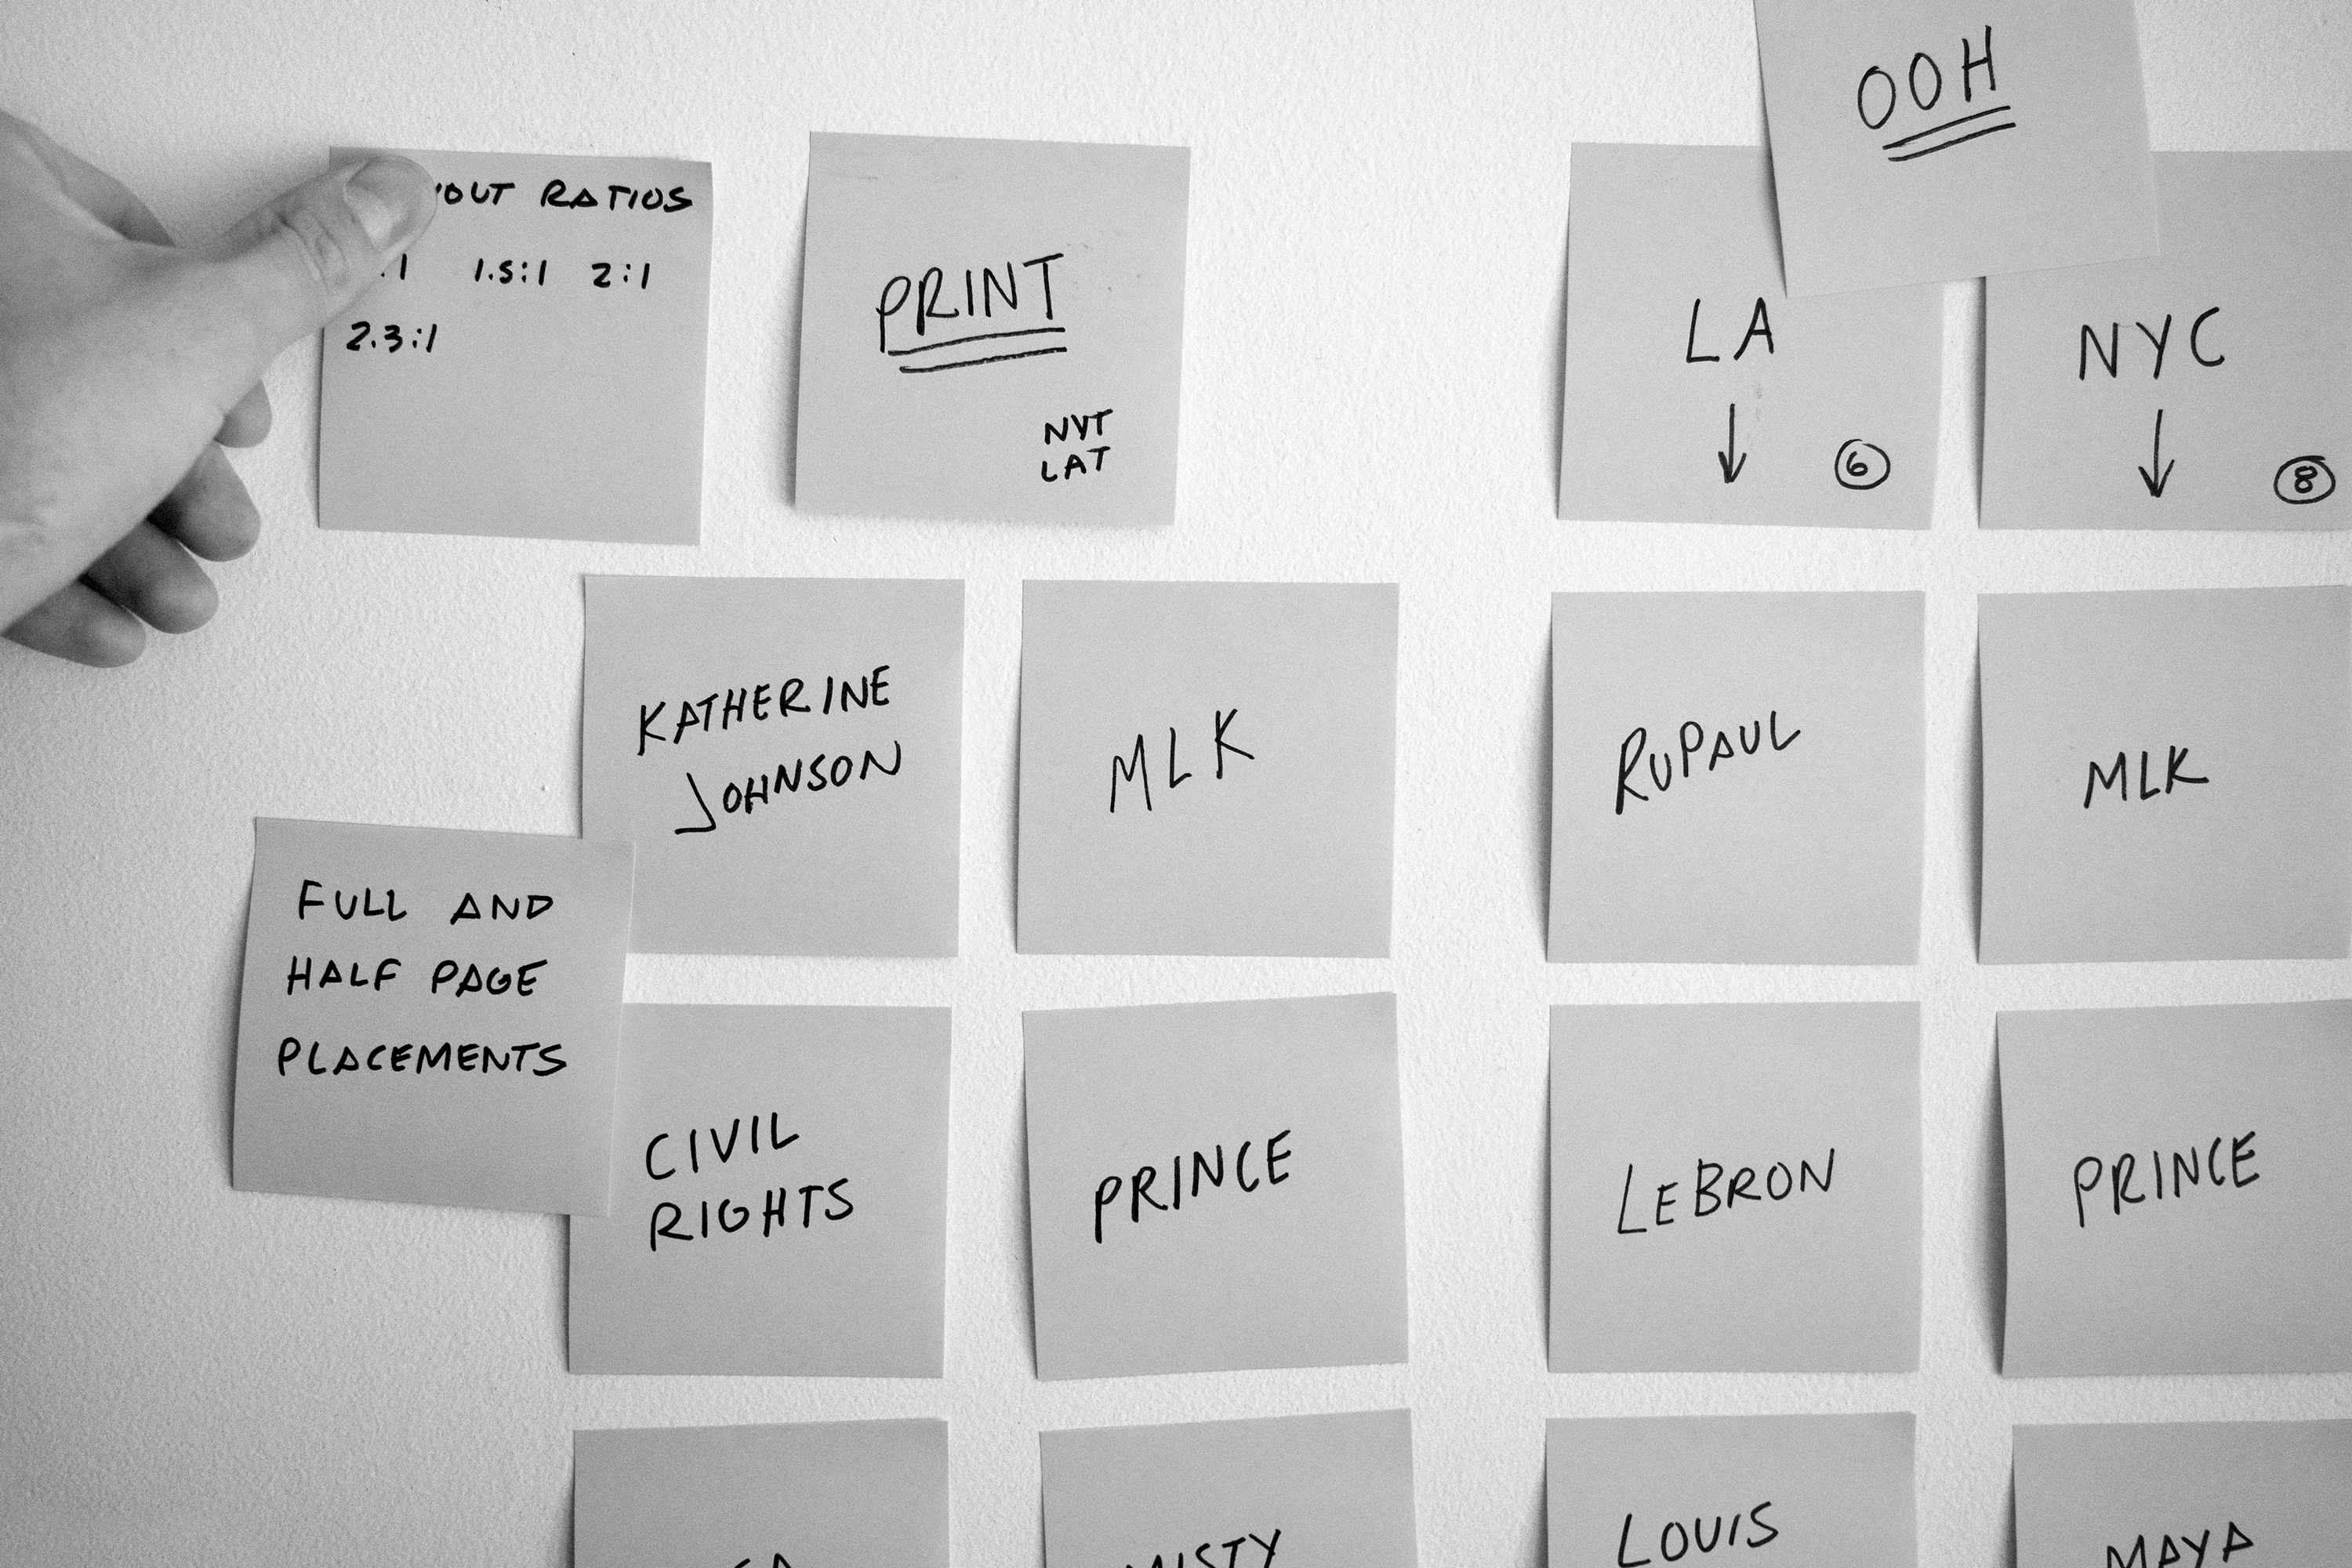 RATIOS
1.5:1 2:1
2.3:1
PRINT
NYT
LAT
OOH
LA
6
NYC
8
KATHERINE
JOHNSON
MLK
RUPAUL
MLK
FULL AND
HALF PAGE
PLACEMENTS
CIVIL
RIGHTS
PRINCE
LEBRON
PRINCE
MISTY
LOUIS
MAYA